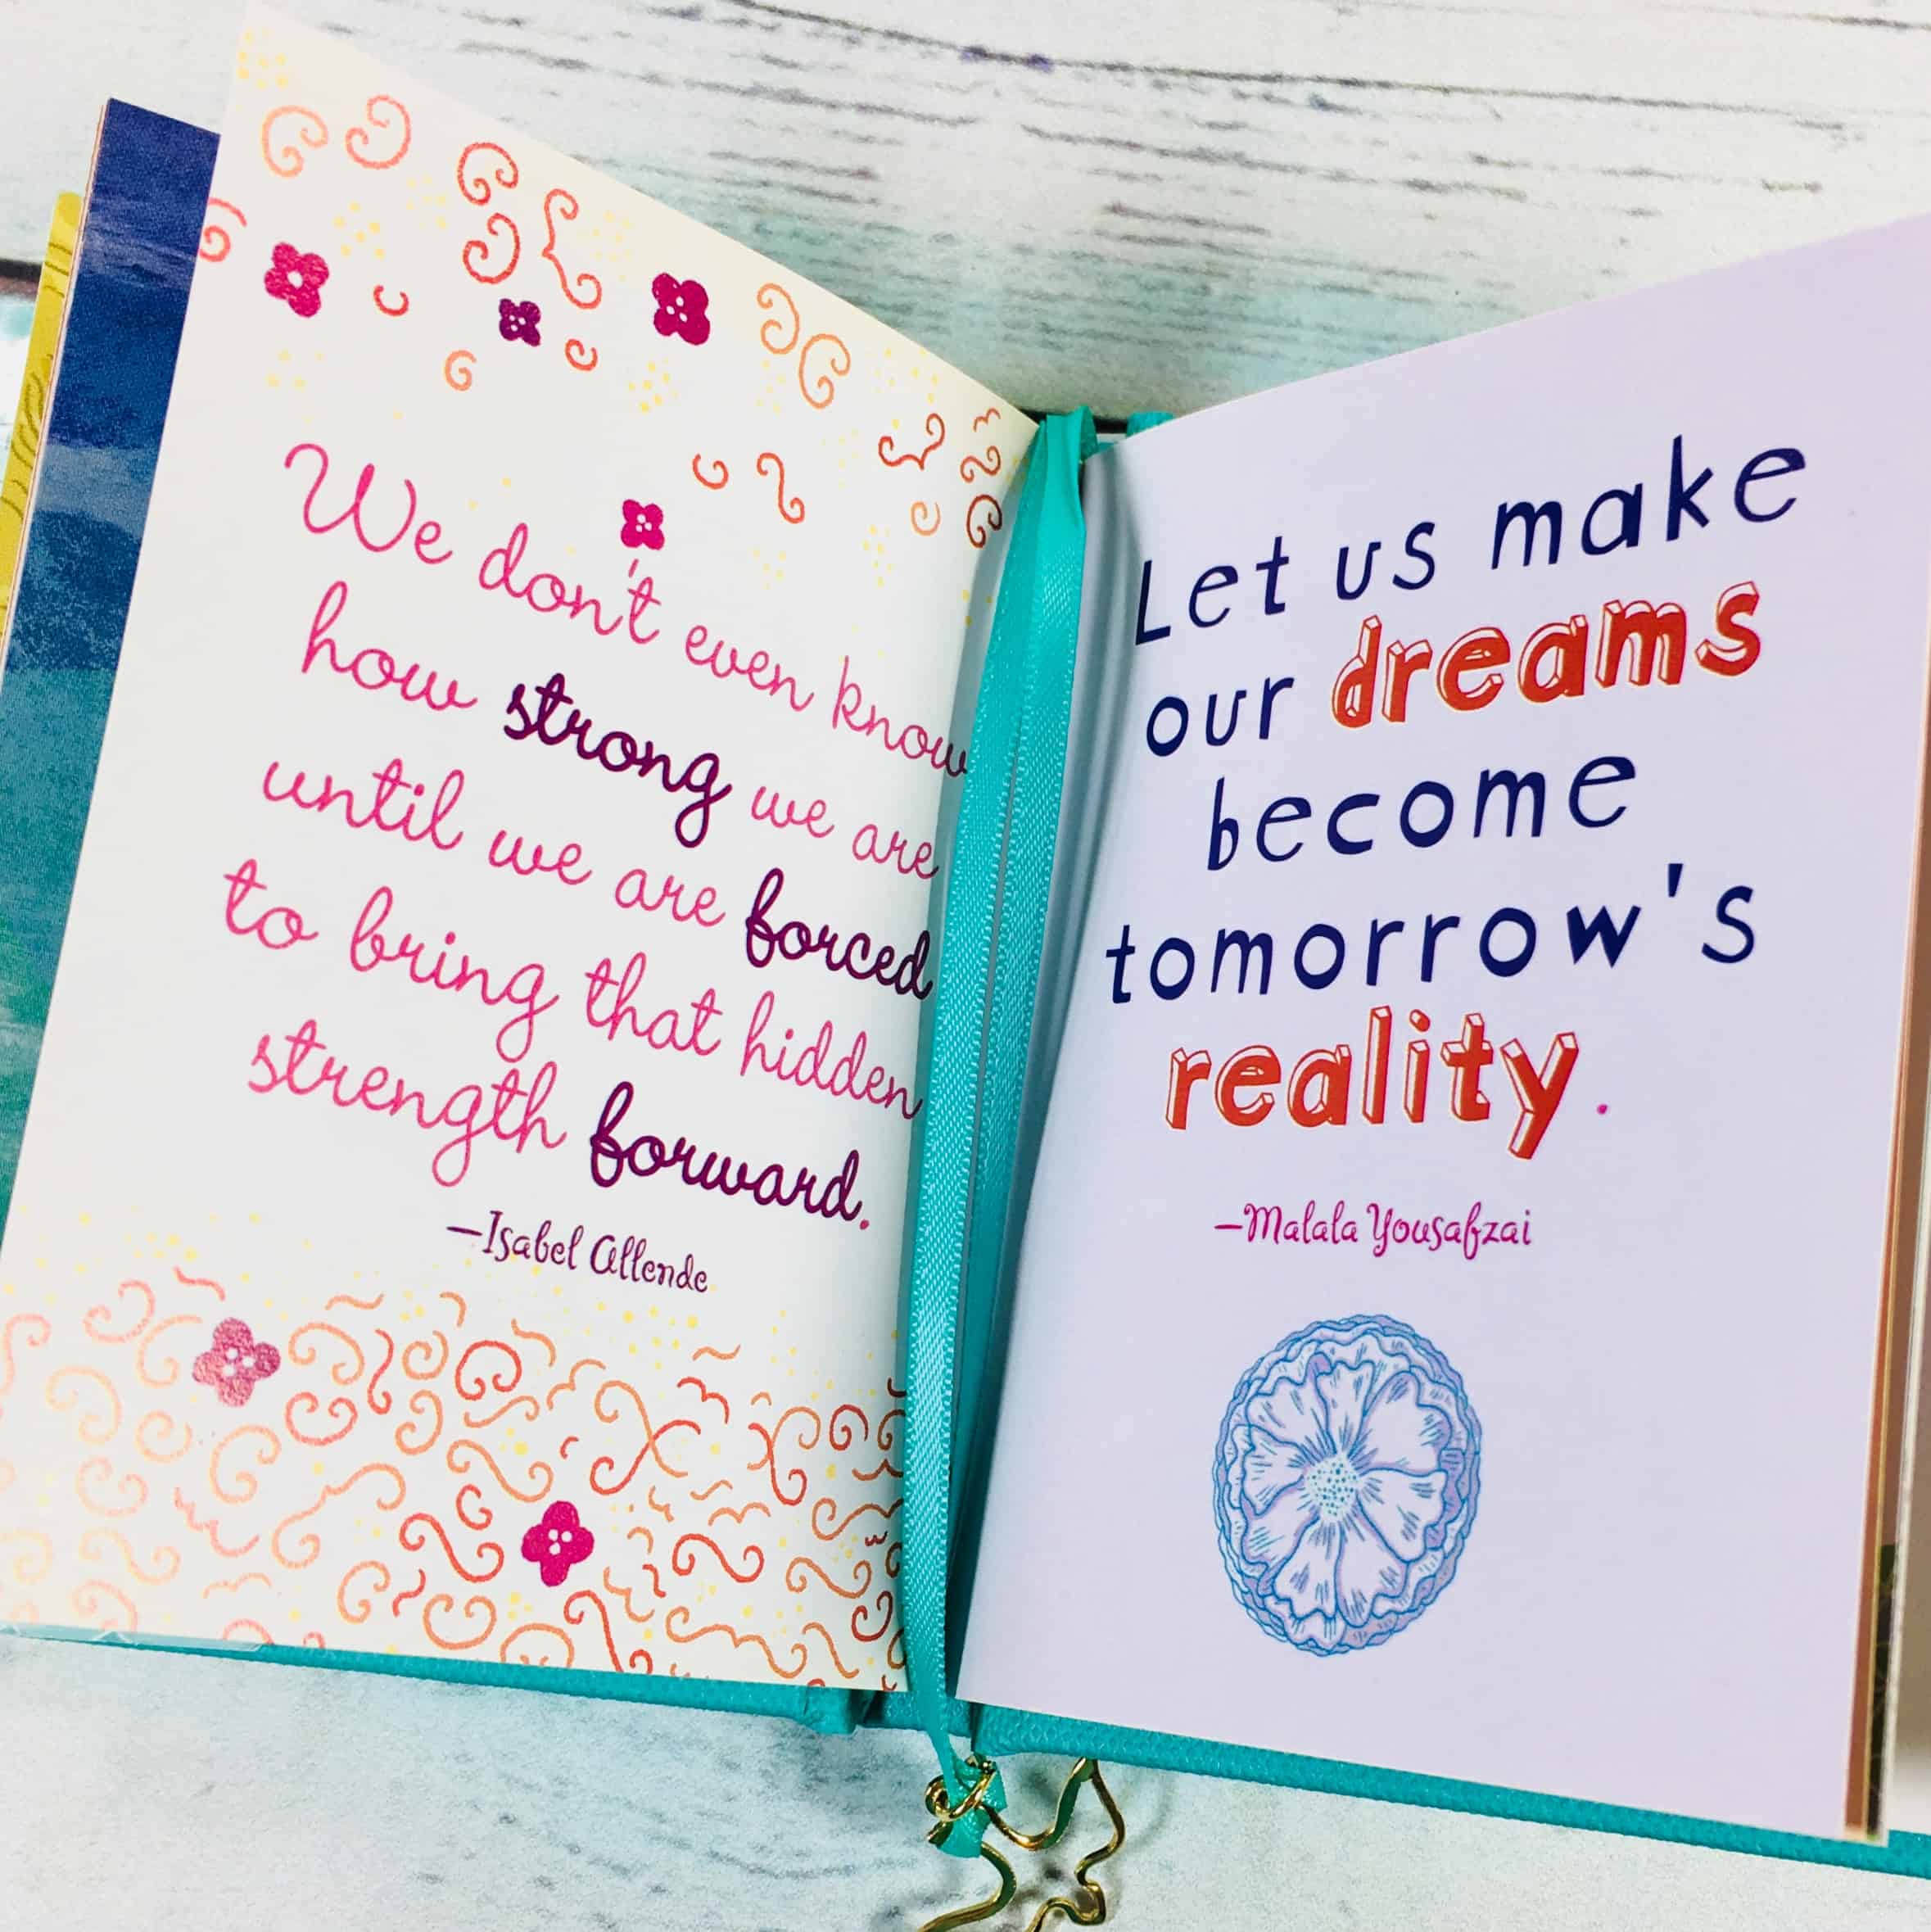 We don't even know
how strong we are
until we are forced
to bring that hidden
strength forward.
—Isabel Allende
Let us make
our dreams
become
tomorrow's
reality.
—Malala Yousafzai